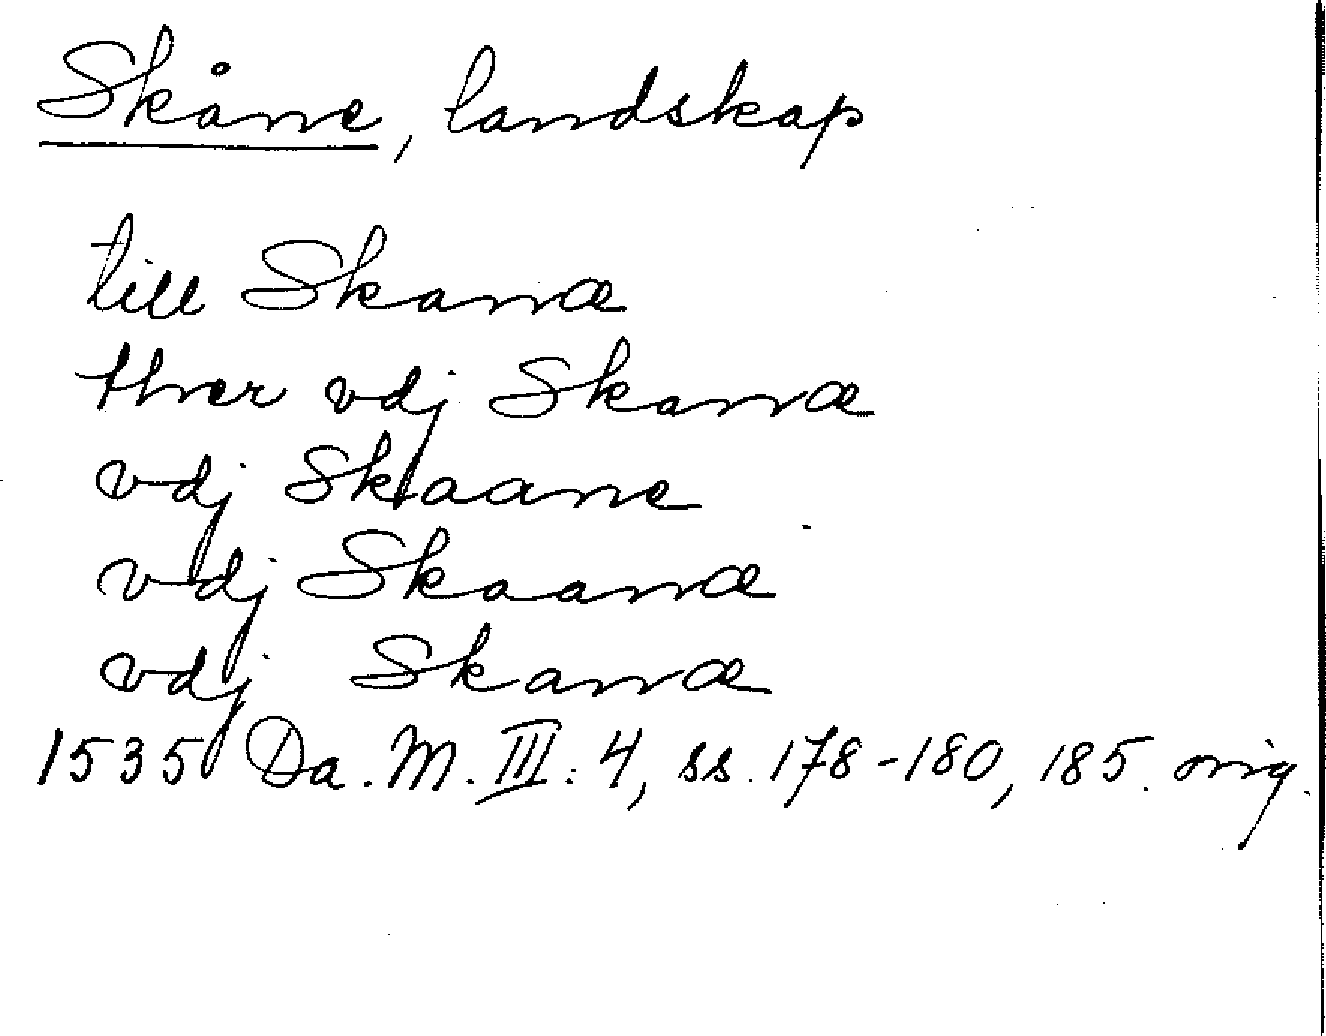 Skåne, landskap
till Skanæ
thær vdj Skanæ
vdj Skaane
vdj Skaanæ
vdj Skanæ
1535 Da. M. III: 4, ss. 178-180, 185. orig.